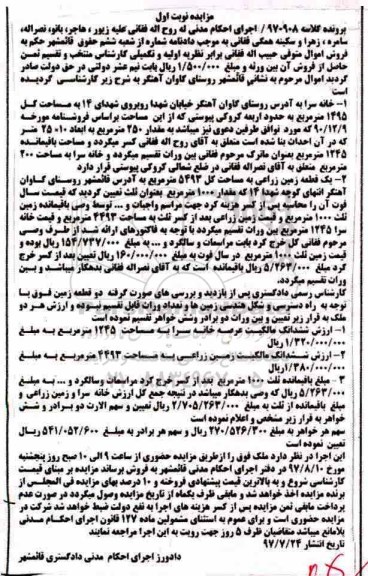 مزایده نوبت اول
پرونده کلاسه ۹۷۰۹۰۸ / اجرای احکام مدنی له روح اله فغانی علیه زیور، هاجر، بانو، نصراله،
سامره، زهرا و سکینه همگی فغانی به موجب دادنامه شماره از شعبه ششم حقوق قائمشهر حکم به
فروش اموال متوفی حبیب اله فغانی برابر نظریه اولیه و تکمیلی کارشناس منتخب و تقسیم ثمن
حاصل از فروش آن بین ورثه و مبلغ ۱/۵۰۰/۰۰۰ ریال بابت نیم عشر دولتی در حق دولت صادر
گردید اموال مرحوم به نشانی قائمشهر روستای گاوان آهنگر به شرح زیر کارشناسی گردیده
است
۱- خانه سرا به آدرس روستای گاوان آهنگر خیابان شهدا روبروی شهدای ۱۴ به مساحت کل
۱۴۹۵ مترمربع به حدود اربعه کروکی پیوستی که از این مساحت براساس فروشنامه مورخه
۹۰/۱۲/۹ که مورد توافق طرفین دعوی نیز میباشد به مقدار ۲۵۰ مترمربع به ابعاد ۱۰*۲۵ متر
که در آن احداث بنا شده است متعلق به آقای روح اله فغانی کسر میگردد و مساحت باقیمانده
۱۲۴۵ مترمربع بعنوان ماترک مرحوم فغانی بین وراث تقسیم میگردد و خانه سرا به مساحت ۲۰۰
مترمربع متعلق به آقای نصراله فغانی در ضلع شمالی کروکی پیوستی قرار دارد
۲- یک قطعه زمین زراعی به مساحت کل ۵۴۹۳ مترمربع به آدرس قائمشهر روستای گاوان
آهنگر انتهای کوچه شهدا ۱۴ که مقدار ۱۰۰۰ مترمربع بعنوان ثلث تعیین گردید که قیمت سال
فوت آن را محاسبه پس از کسر هزینه کرد جهت مراسم واجبات و ... توسط وصی باقیمانده زمین
ثلث ۱۰۰۰ مترمربع و قیمت زمین زراعی بعد از کسر ثلث به مساحت ۴۴۹۳ مترمربع و قیمت خانه
سرا ۱۲۴۵ مترمربع بین وراث تقسیم میگردد با توجه به فاکتورهای ارائه شده از طرف وصی
مرحوم فغانی کل خرج کرد بابت مراسمات و سالگرد و ... به مبلغ ۱۵۴/۷۳۷/۰۰۰ ریال بوده و
قیمت زمین ثلث ۱۰۰۰ مترمربع در سال فوت به مبلغ ۱۶۰/۰۰۰/۰۰۰ ریال تعیین بعد از کسر خرج
کرد مبلغ ۵/۲۶۳/۰۰۰ ریال باقیمانده است که به آقای نصراله فغانی بدهکار میباشد و بین
وراث تقسیم میگردد.
کارشناس رسمی دادگستری پس از بازدید و بررسی های صورت گرفته دو قطعه زمین فوق با
توجه به راه دسترسی و شکل هندسی زمین ها و تعداد وراث قابل تقسیم نبوده و ارزش هر دو
ملک به قرار زیر تعیین و بین وراث دو برادر وشش خواهر تقسیم نموده است
۱- ارزش ششدانگ مالکیت عرصه خانه سرا به مساحت ۱۲۴۵ مترمربع به مبلغ
۱/۳۲۰/۰۰۰/۰۰۰ ریال
۲- ارزش ششدانگ مالکیت زمین زراعی به مساحت ۴۴۹۳ مترمربع به مبلغ
۱/۳۸۰/۰۰۰/۰۰۰ ریال
۳- مبلغ باقیمانده ثلث ۱۰۰۰ مترمربع بعد از کسر خرج کرد مراسمات وسالگرد و ... به مبلغ
۵/۲۶۳/۰۰۰ ریال که وصی بدهکار میباشد در نتیجه جمع کل ارزش خانه سرا و زمین زراعی و
مبلغ باقیمانده از ثلث به مبلغ ۲/۷۰۵/۲۶۳/۰۰۰ ریال تعیین و سهم الارث دو برادر و شش
خواهر به قرار زیر مشخص و اعلام نموده است
سهم هر خواهر به مبلغ ۲۷۰/۵۲۶/۳۰۰ ریال و سهم هر برادر به مبلغ ۵۴۱/۰۵۲/۶۰۰ ریال
تعیین نموده است
این اجرا در نظر دارد ملک فوق را ازطریق مزایده حضوری از ساعت ۹ الی ۱۰ صبح روز پنجشنبه
مورخ ۹۷/۸/۱۰ در دفتر اجرای احکام مدنی قائمشهر به فروش برساند مزایده بر مبنای قیمت
کارشناسی شروع و به بالاترین قیمت پیشنهادی فروخته و ۱۰ درصد بهای مزایده فی المجلس از
برنده مزایده اخذ خواهد شد و مابقی ظرف یکماه از تاریخ مزایده وصول میگردد در صورت عدم
پرداخت مابقی ثمن مزایده پس از کسر هزینه های اجرا به نفع دولت ضبط خواهد شد شرکت در
مزایده حضوری است و برای عموم به استثنای مشمولین ماده ۱۲۷ قانون اجرای احکام مدنی
بلامانع میباشد متقاضیان ظرف ۵ روز جهت رویت به این اجرا مراجعه نمایند
تاریخ انتشار ۹۷/۷/۲۴
دادورز اجرای احکام مدنی دادگستری قائمشهر